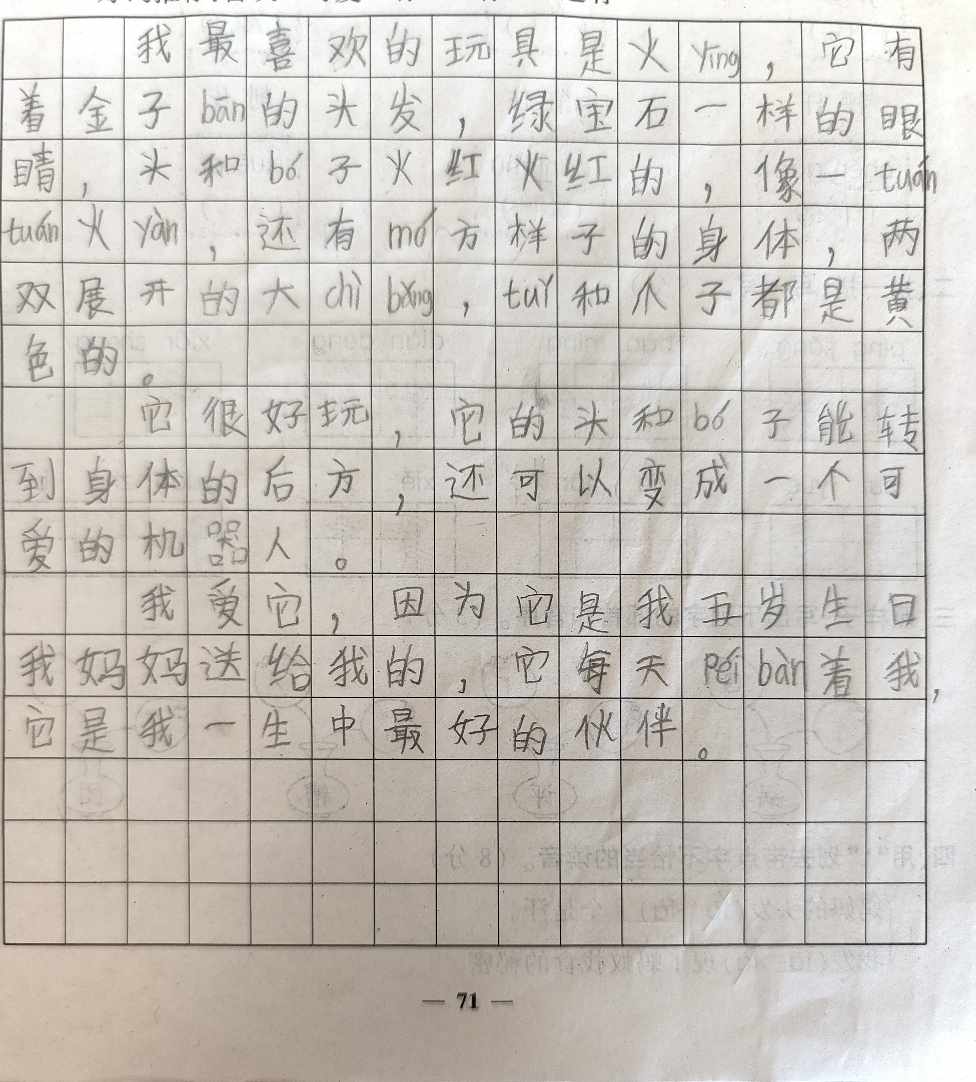 我最喜欢的玩具是火yīng，它有
着金子bān的头发，绿宝石一样的眼
睛，头和bó子火红火红的，像一tuán
tuán火yàn，还有mó方样子的身体，两
双展开的大chì bǎng，tuǐ和爪子都是黄
色的。
它很好玩，它的头和bó子能转
到身体的后方，还可以变成一个可
爱的机器人。
我爱它，因为它是我五岁生日
我妈妈送给我的，它每天péi bàn着我，
它是我一生中最好的伙伴。
— 71 —